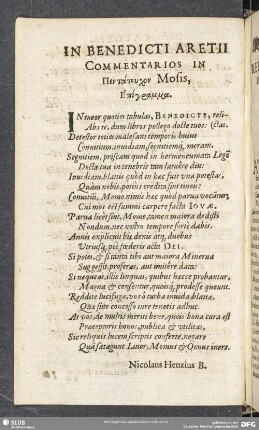 IN BENEDICTI ARETII
COMMENTARIOS IN
Mosis,
INtueor quoties tabulas, BENEDICTE, reli-
Abs te, dum libros pellego docte tuos: ctas.
Detestor toties malesani temporis huius
Conuitium, inuidiam, segnitiemq́, meram.
Segnitiem, priscam quod in
Doctae tua in tenebris tam latuêre diu:
Inuidiam, blanis quòd in hac suit vna potestas,
Quàm nobis potius credita sint
Conuitii, Momo nimis hac quòd parua
Cui mos est summi carpere facta IOVA.
Parua licet sint, Mome, tamen maiora dedisti
Nondum, nec nostro tempore forsi dabis.
Annis explicuit bis denis atq́, duobus
Vtriusq́, pii foederis acta DEI.
Si potes, & si tanta tibi aut maiora Minerua
Suggessit, proferas, aut imitêre data:
Si nequeas illis linguas, quibus haecce probantur,
Magna & censentur, quoisq́, prodesse queunt.
Reddite lucifugae, vos ô turba inuida blattae,
Quae sine concesso iure tenetis adhuc.
At vos, de multis meriti bene, queis bona cura est
Praeceptoris honos, publica & vtilitas,
Sic reliquis lucem scriptis conferte, negare
Quâ satagunt Liuor, Momus & Genus iners.
Nicolaus Henzius B.
SLUB
DFG